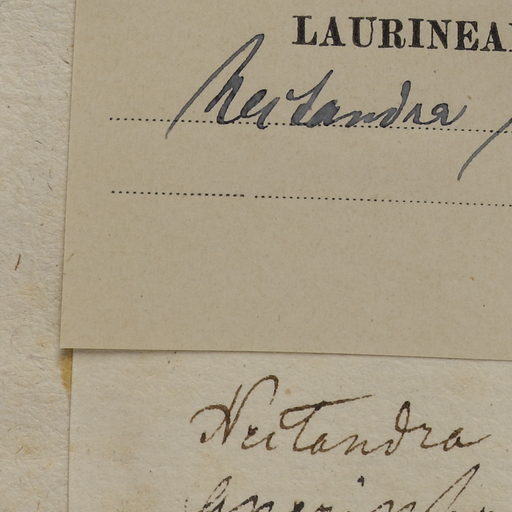 LAURINEA
Nectandra
Nectandra